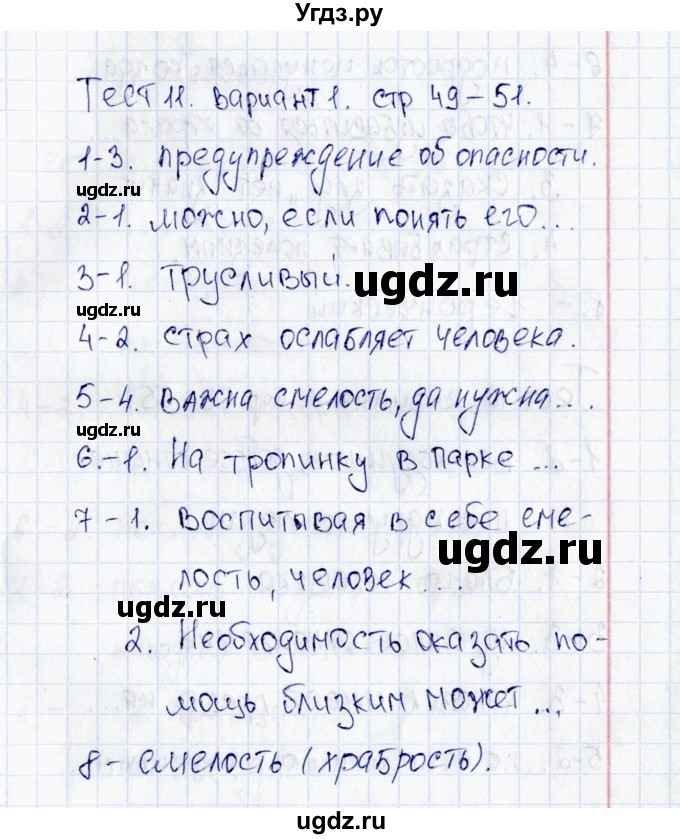 Угдз.ру
Тест 11. вариант 1. стр 49-51.
1-3. предупреждение об опасности.
ugdz.ru
2-1. можно, если понять его...
3-1. трусливый.
ugdz.ru
ugdz.ru
4-2. страх ослабляет человека.
5-4. важна смелость, да нужна...
ugdz.ru
6.-1. На тропинку в парке ...
7-1. воспитывая в себе сме-
ugdz.ru
лость, человек ...
ugdz.ru
2. Необходимость оказать по-
мощь близким может ...
8- смелость (храбрость).